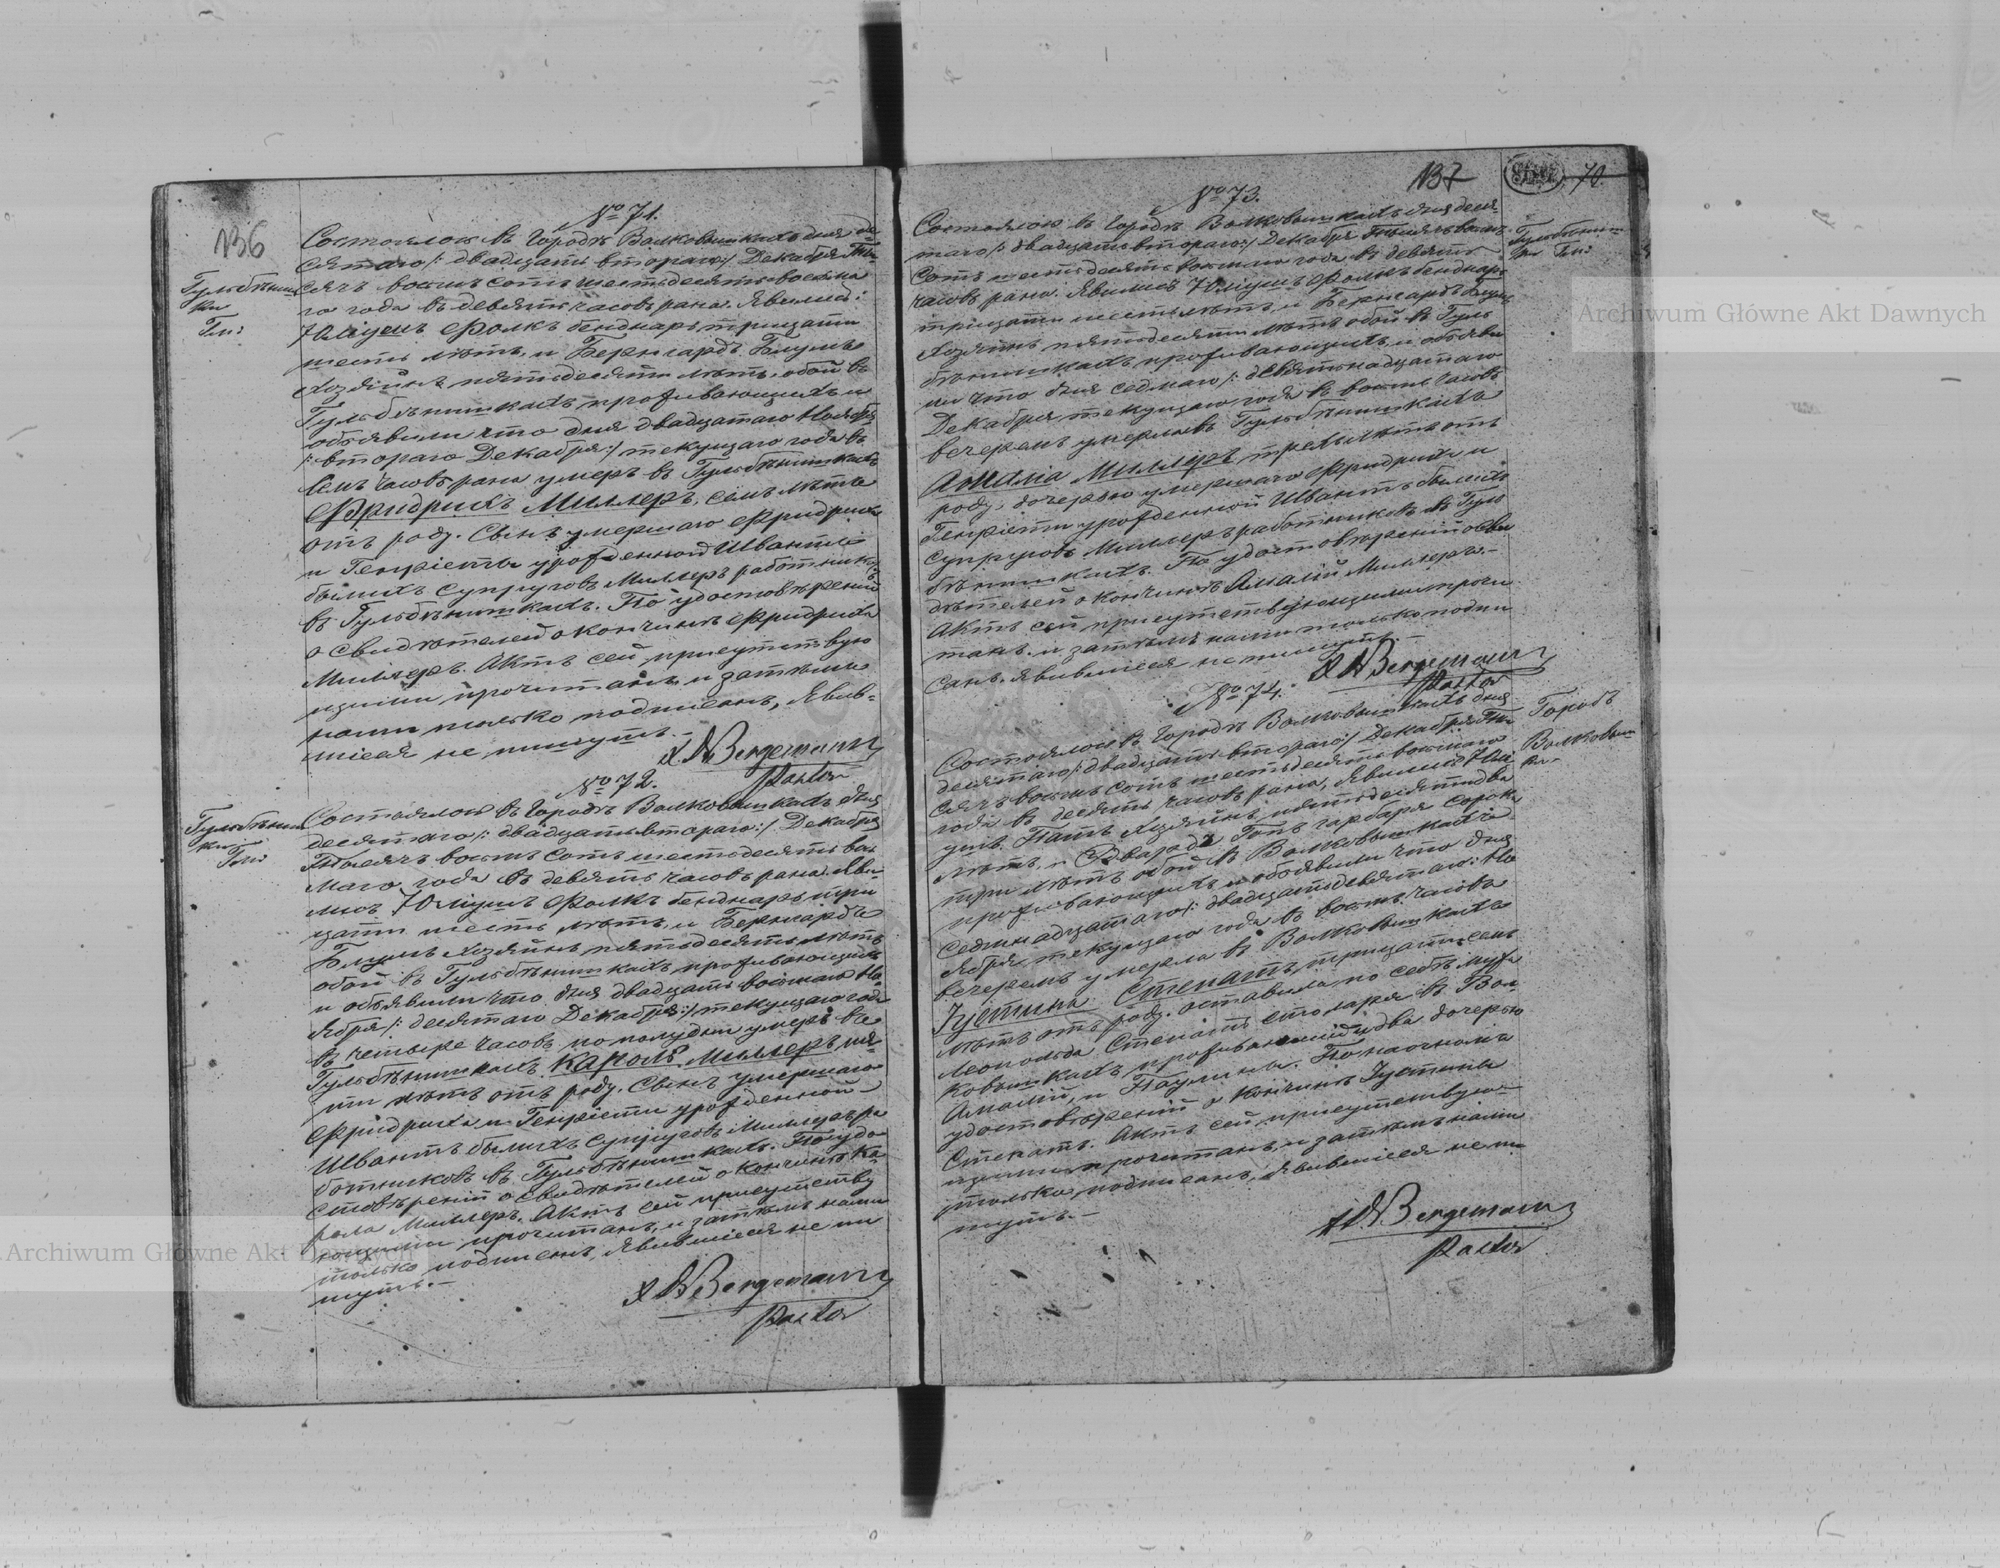 136
№ 71.
Гульбѣниш
ки
Гми:
Состоялось въ Городѣ Волковышкахъ дня де
сятаго /: двадцать втораго :/ Декабря Ты
сячъ восемь сотъ шестьдесятъ восьма
го года въ девять часовъ рана. Явились:
Юліусъ Фолкъ бенднаръ тридцати
шесть лѣтъ, и Бернгардъ Блумъ
Хозяйнъ пятьдесятъ лѣтъ, обои въ
Гульбѣнишкахъ проживающихъ и
объявили что дня двадцатаго Ноября
/: втораго Декабря :/ текущаго года въ
семъ часовъ рана умеръ въ Гульбѣнишкахъ
Фридрихъ Миллеръ, семъ лѣтъ
отъ роду. Сынъ умершаго Фридриха
и Генріеты урожденной Швантъ
бывшихъ супруговъ Миллеръ работниковъ
въ Гульбѣнишкахъ. По удостовѣреніи
о свидѣтелей о кончинѣ Фридриха
Миллеръ. Актъ сей присутствую
щими прочитанъ и затѣмъ
нами только подписанъ, Явив-
шіеся не пишутъ.-
A Bergemann
Pastor
№ 72.
Гульбѣниш
ки
Гми:
Состоялось въ Городѣ Волковышкахъ дня
десятаго /: двадцать втораго :/ Декабря
Тысячъ восемь сотъ шестьдесятъ вось
маго года въ девять часовъ рана. Яви-
лись Юліусъ Фолкъ бенднаръ три
цати шесть лѣтъ, и Бернгардъ
Блумъ Хозяйнъ пятьдесятъ лѣтъ
обои въ Гульбѣнишкахъ проживающихъ
и объявили что дня двадцать восьмаго Но-
ября /: десятаго Декабря :/ текущаго года
въ четыре часовъ пополудни умеръ въ
Гульбѣнишкахъ Кароль Миллеръ пя-
ти лѣтъ отъ роду. Сынъ умершаго
Фридриха и Генріеты урожденной
Швантъ бывшихъ супруговъ Миллеръ ра
ботниковъ въ Гульбѣнишкахъ. По удо
стовѣреніи о свидѣтелей о кончинѣ Ка-
роля Миллеръ. Актъ сей присутству
ющими прочитанъ, и затѣмъ нами
только подписанъ, Явившіеся не пи
шутъ.-
A Bergemann
Pastor
137
70.
№ 73.
Гульбѣниш
ки Гми:
Состоялось въ Городѣ Волковышкахъ дня деся
таго /: двадцать втораго :/ Декабря Тысячъ восемь
сотъ шестьдесятъ восьмаго года въ девять
часовъ рана. Явились Юліусъ Фолкъ бенднаръ
тридцати шесть лѣтъ, и Бернгардъ Блумъ
Хозяйнъ пятьдесятъ лѣтъ обои въ Гуль
бѣнишкахъ проживающихъ, и объяви
ли что дня седмаго /: девятнадцатаго
Декабря текущаго года въ восемь часовъ
вечеромъ умерла въ Гульбѣнишкахъ
Амалія Миллеръ трехъ лѣтъ отъ
роду, дочерью умершаго Фридриха и
Генріеты урожденной Швантъ бывшихъ
супруговъ Миллеръ работниковъ въ Гуль
бѣнишкахъ. По удостовѣреніи о сви
дѣтелей о кончинѣ Амаліи Миллеръ.-
Актъ сей присутствующими прочи
танъ. и затѣмъ нами только подпи
санъ. Явившіеся не пишутъ.-
A Bergemann
Pastor
№ 74.
Городъ
Волковыш
ки-
Состоялось въ Городѣ Волковышкахъ дня
десятаго /: двадцать втораго :/ Декабря Ты
сячъ восемь сотъ шестьдесятъ восьмаго
года въ десять часовъ рана, Явились
Хозяйнъ, пятьдесятъ два
лѣтъ, и Эдвардъ гарбаря сорокъ
три лѣтъ обои въ Волковышкахъ
проживающихъ и объявили что дня
седмнадцатаго /: двадцать девятаго :/ Но
ября текущаго года въ восемь часовъ
вечеромъ умерла въ Волковышкахъ
Іустина Степатъ, тридцати семь
лѣтъ отъ роду. оставила по себѣ мужа
Леопольда Степатъ столяря въ Вол
ковышкахъ проживающій и два дочерью
Амаліи, и Паулины. По наочномъ
удостовѣреніи о кончинѣ Іустины
Степатъ. Актъ сей присутствую-
щими прочитанъ, и затѣмъ нами
только подписанъ, Явившіеся не пи
шутъ.-
A Bergemann
Pastor
Archiwum Główne Akt Dawnych
Archiwum Główne Akt Dawnych